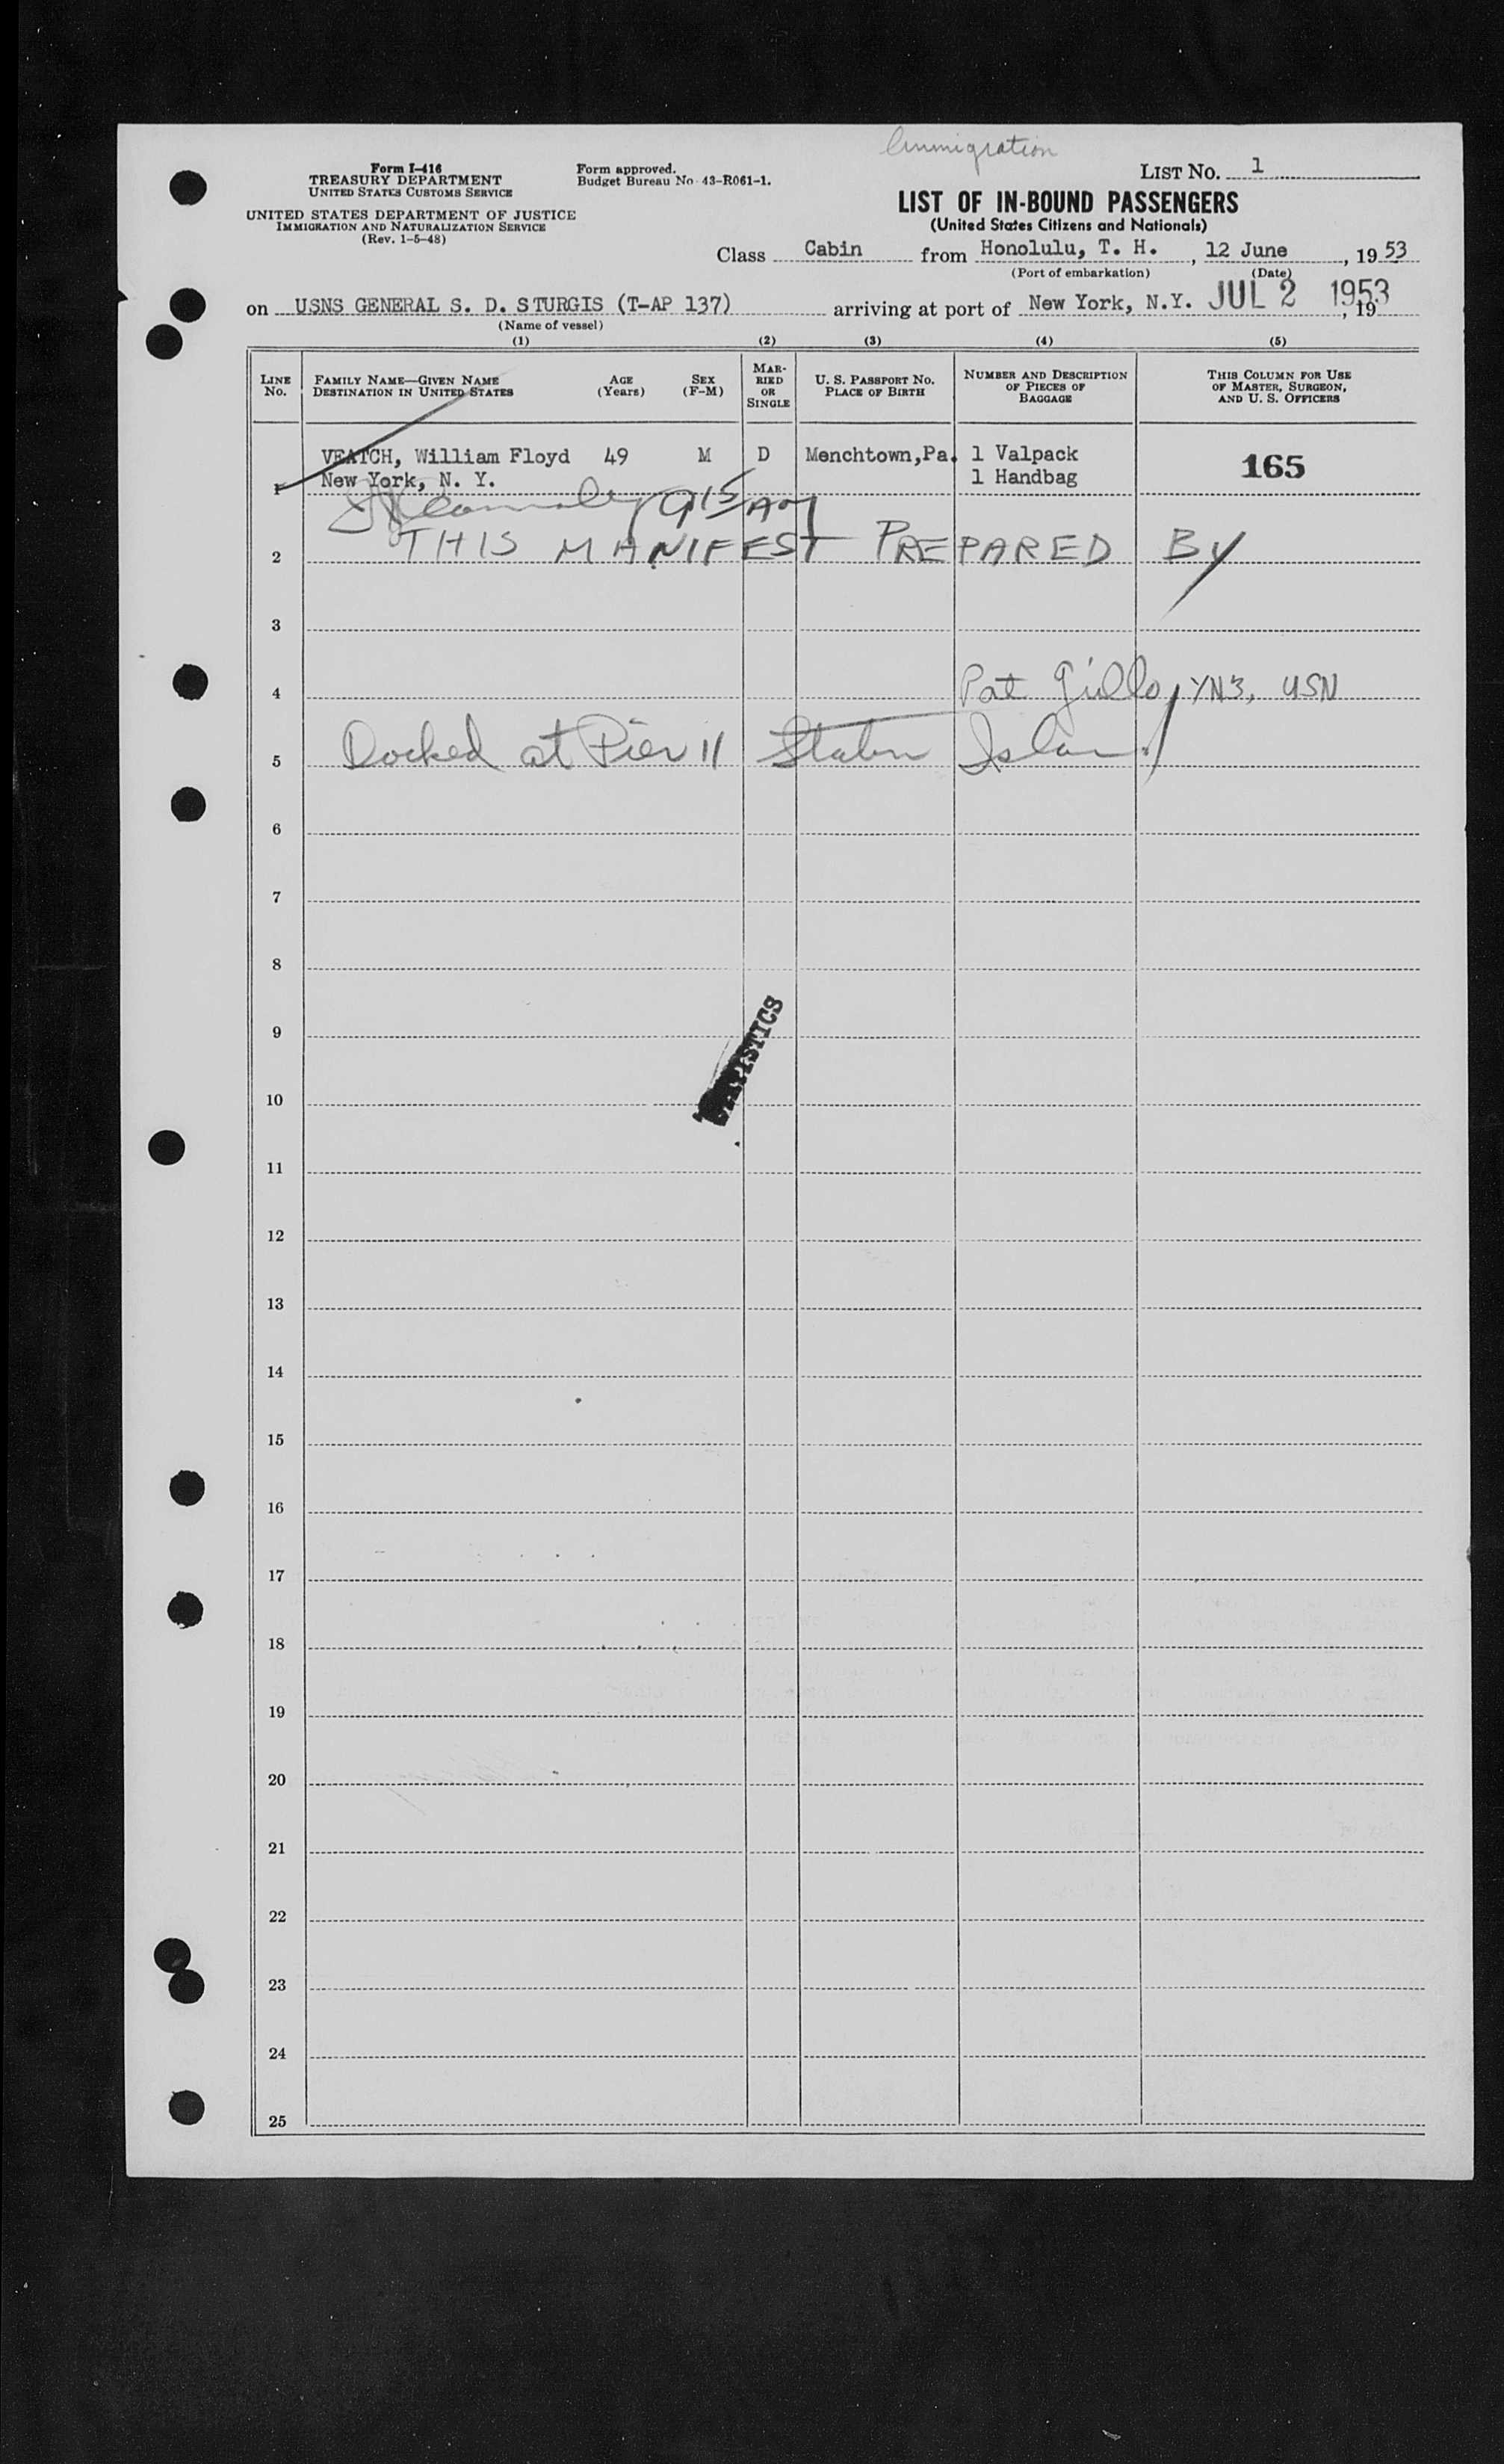 Immigration
Form I-416
TREASURY DEPARTMENT
UNITED STATES CUSTOMS SERVICE
UNITED STATES DEPARTMENT OF JUSTICE
IMMIGRATION AND NATURALIZATION SERVICE
(Rev. 1-5-48)
Form approved.
Budget Bureau No. 43-R061-1.
LIST NO. 1
LIST OF IN-BOUND PASSENGERS
(United States Citizens and Nationals)
Class Cabin from Honolulu, T. H. , 12 June , 1953
(Port of embarkation) (Date)
on USNS GENERAL S. D. STURGIS (T-AP 137) arriving at port of New York, N.Y. JUL 2 1953 , 19
(Name of vessel)
(1) (2) (3) (4) (5)
LINE NO.
FAMILY NAME—GIVEN NAME
DESTINATION IN UNITED STATES
AGE
(Years)
SEX
(F-M)
MARRIED OR SINGLE
U. S. PASSPORT NO.
PLACE OF BIRTH
NUMBER AND DESCRIPTION
OF PIECES OF
BAGGAGE
THIS COLUMN FOR USE
OF MASTER, SURGEON,
AND U. S. OFFICERS
VEATCH, William Floyd 49 M D Menchtown,Pa. 1 Valpack 165
1 New York, N. Y. 1 Handbag
915 AM
2 THIS MANIFEST PREPARED BY
3
4 Pat Gillo, YN3, USN
5 Docked at Pier 11 Staten Island
6
7
8
9
STATISTICS
10
11
12
13
14
15
16
17
18
19
20
21
22
23
24
25